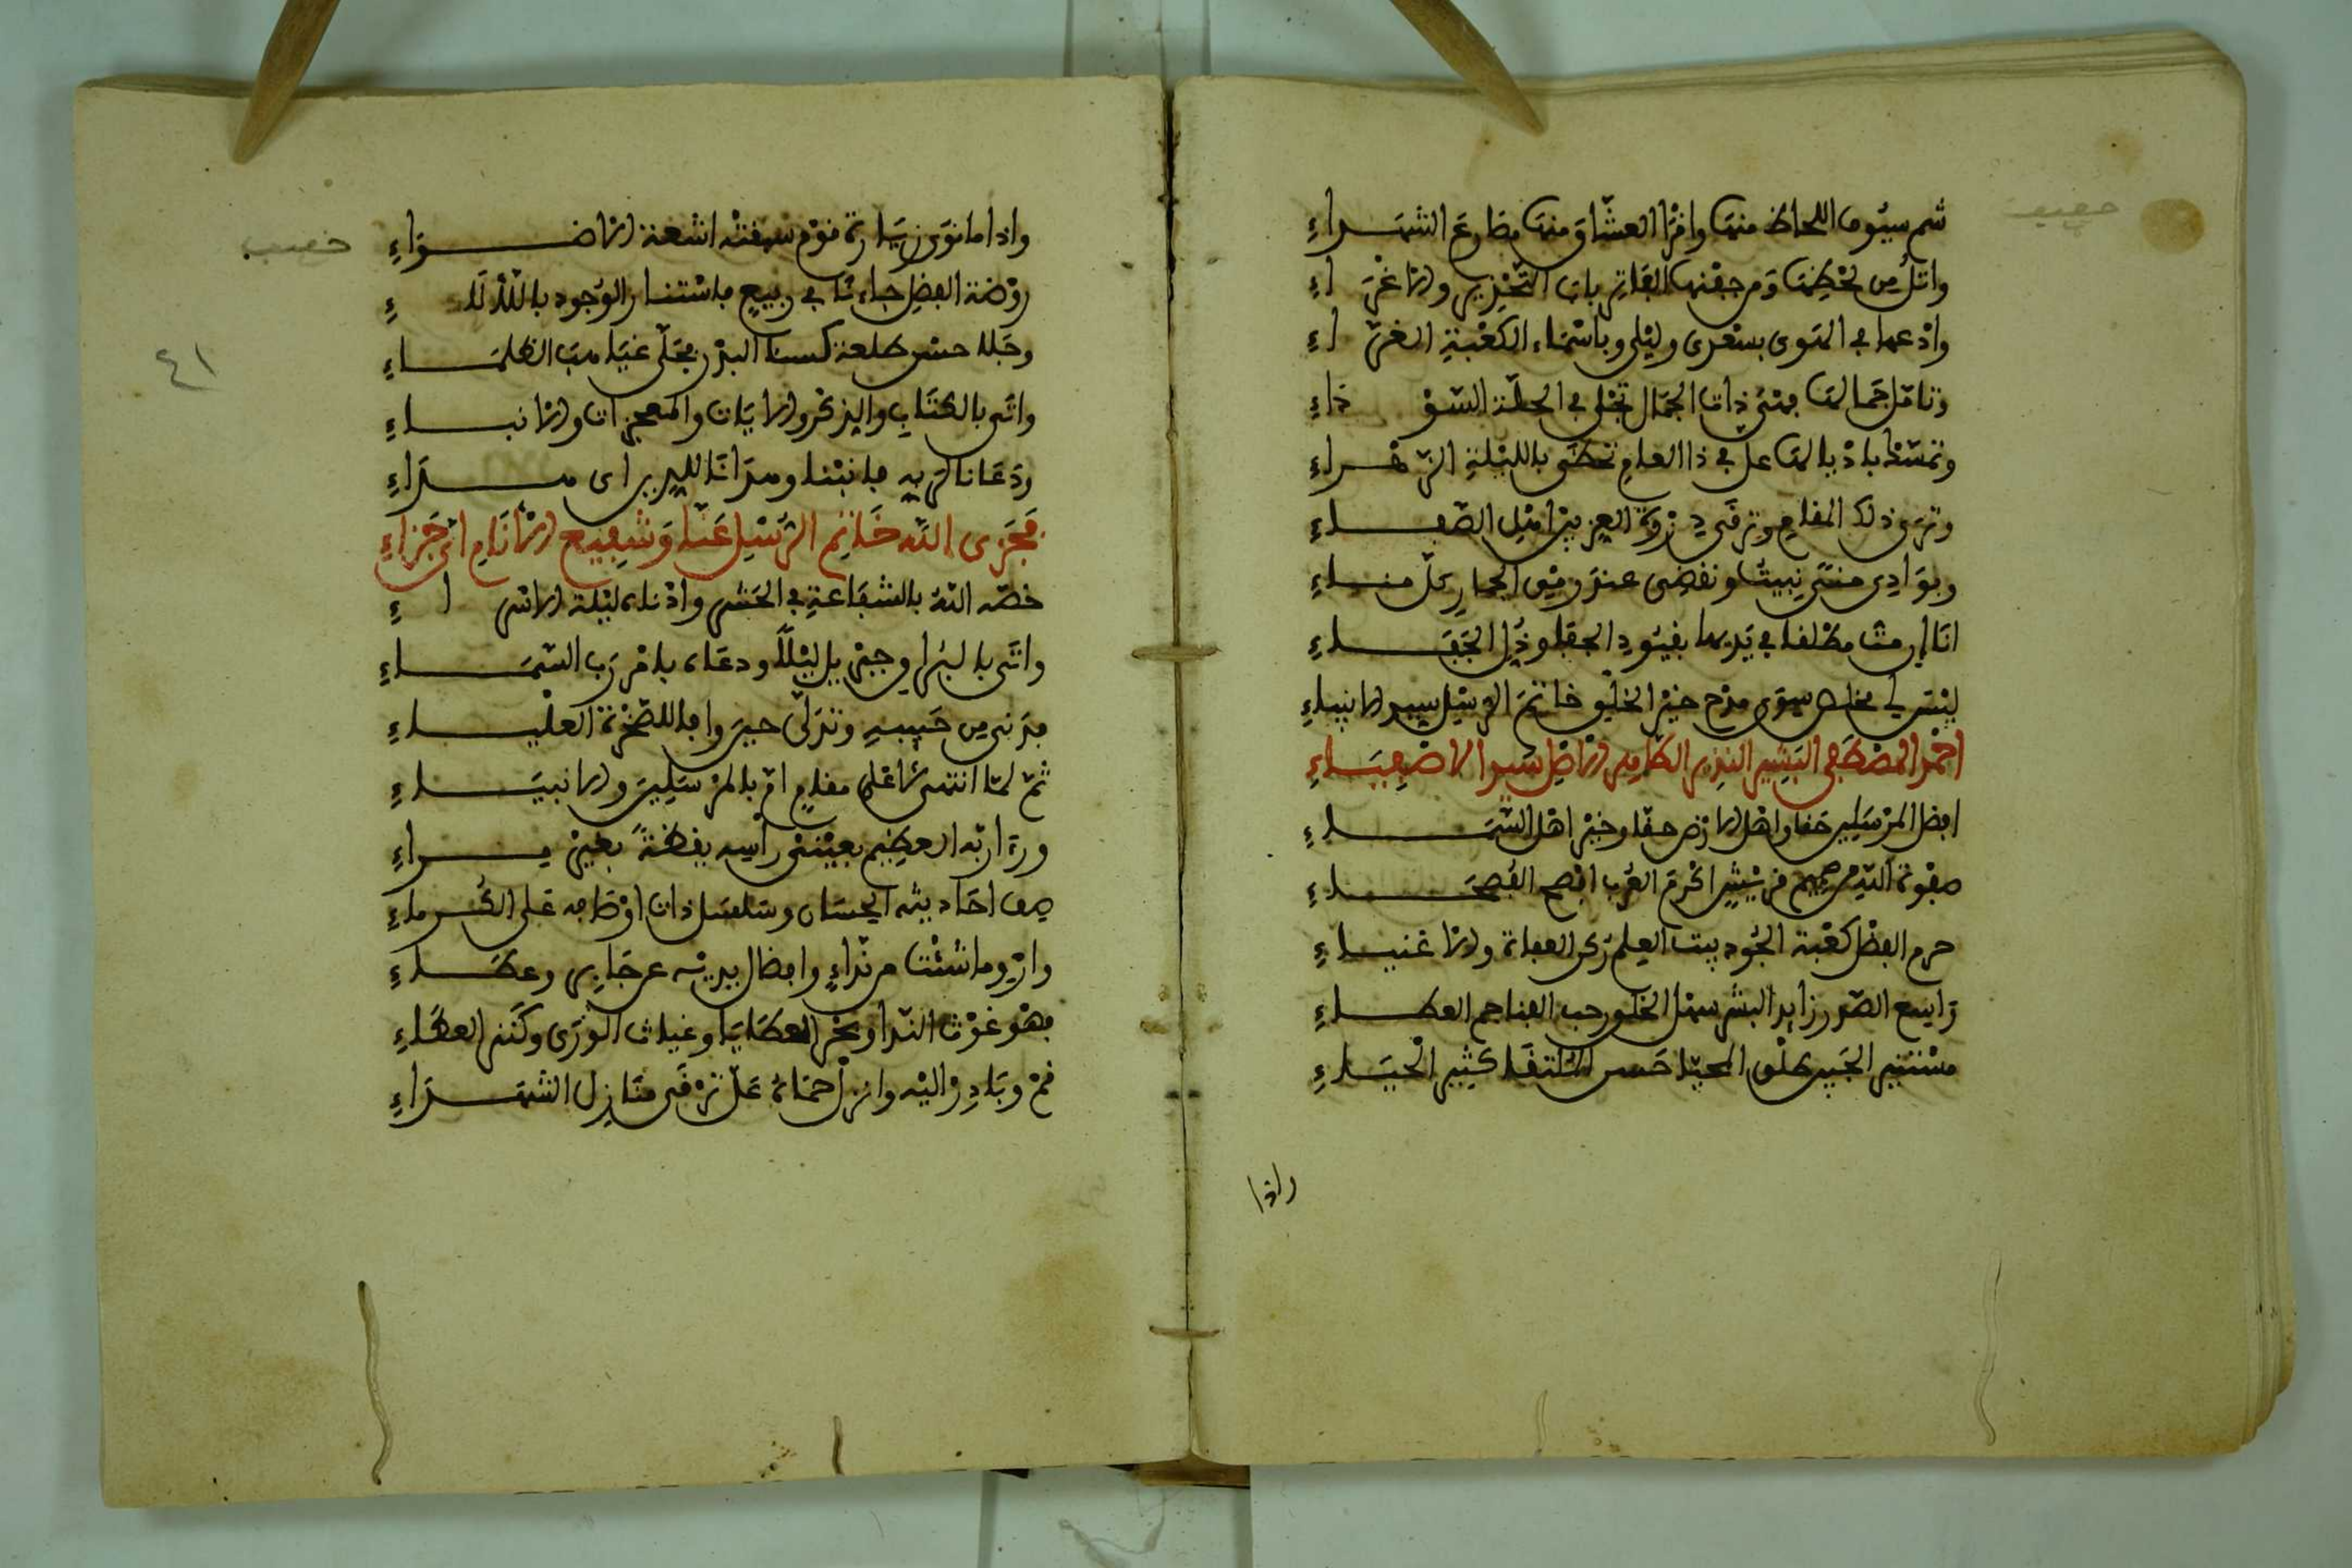 خفيف
شم سيوف اللحاظ منها واقرا العشاق منها مطالع الشهراء
واتل من لحظها ومن جفنها الفاتر باب التحذير والاغراء
وادعها في الهوى بسعدى وليلى وباسماء الكعبة الغراء
وتامل جمالها فهي ذات الجمال تجلى في الحلة السوداء
وتمسك باذيالها عل في ذا العام تحظى بالليلة الزهراء
وترى ذلك المقام وترقى ذروة العز بين اهل الصفاء
وبوادي منى نبيت ونقضي عند رمي الجمار كل مناء
انا ان مت مطلقا في يديها بقيود الجفا وذل الجفاء
ليس لي مخلص سوى مدح خير الخلق خاتم الرسل سيد الانبياء
احمد المصطفى البشير النذير الكامل الاصل سيد الاصفياء
افضل المرسلين حقا واهل الارض حقا وخير اهل السماء
صفوة الله من صميم قريش اكرم العرب افصح الفصحاء
حرم الفضل كعبة الجود بيت العلم ركن العفاة والاغنياء
واسع الصدر زايد البشر سهل الخلق رحب الفنا جم العطاء
مستنير الجبين طلق المحيا حسن الملتقا كثير الحياء
واذا
خفيف
٤١
واذا ما نوى زيارة قوم سبقته اشعة الاضواء
روضة الفضل جاءنا في ربيع فاستنار الوجود باللألاء
وجلا حسن طلعة كسنا البدر مجلى غياهب الظلماء
واتى بالكتاب والذكر والايات والمعجزات والانباء
ودعانا لربه فانبنا وهدانا للدين اى هداء
فجزى الله خاتم الرسل عنا وشفيع الانام اى جزاء
خصه الله بالشفاعة في الحشر وادناه ليلة الاسراء
واتى بالبراق جبريل ليلا ودعاه بامر رب السماء
فدنى من حبيبه وتدلى حين وافا للصخرة العلياء
ثم لما انتهى لاعلى مقام ام بالمرسلين والانبياء
وراى ربه العظيم بعيني راسه يقظة بغير مراء
صف احاديثه الحسان وسلسل ذات اوصافه على الكرماء
وارو ما شئت من نداء وافضال يديه عن جابر وعطاء
فهو غوث الندا وبحر العطايا وغياث الورى وكنز العطاء
قم وبادر اليه وانزل حماه عل ترقى منازل الشهداء